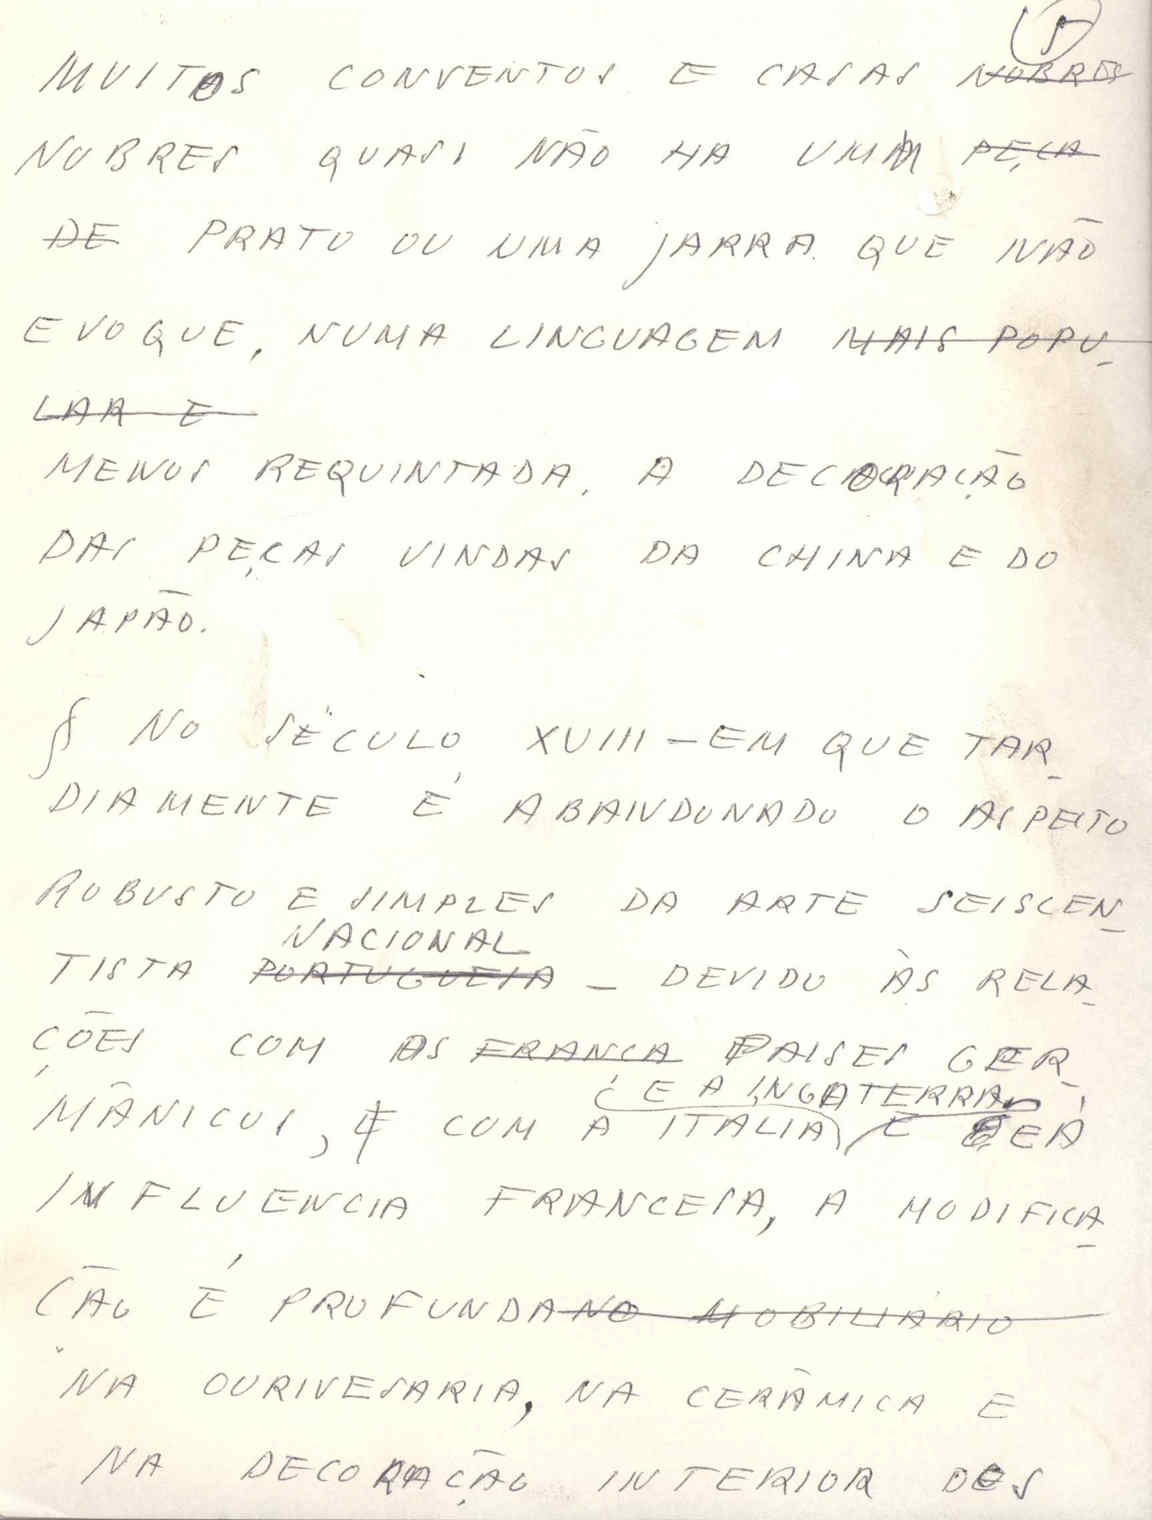 5
MUITOS CONVENTOS E CASAS NOBRES
NOBRES QUASI NÃO HA UM PEÇA
DE PRATO OU UMA JARRA QUE NÃO
EVOQUE, NUMA LINGUAGEM MAIS POPU-
LAR E
MENOS REQUINTADA, A DECORAÇÃO
DAS PEÇAS VINDAS DA CHINA E DO
JAPÃO.
§ NO SÉCULO XVIII — EM QUE TAR-
DIAMENTE É ABANDONADO O ASPETO
ROBUSTO E SIMPLES DA ARTE SEISCEN-
NACIONAL
TISTA PORTUGUESA — DEVIDO ÀS RELA-
ÇÕES COM OS FRANCA PAISES GER-
E A INGLATERRA
MÂNICOS, E COM A ITALIA E Á
INFLUENCIA FRANCESA, A MODIFICA-
ÇÃO É PROFUNDA NO MOBILIÁRIO
NA OURIVESARIA, NA CERÂMICA E
NA DECORAÇÃO INTERIOR DOS